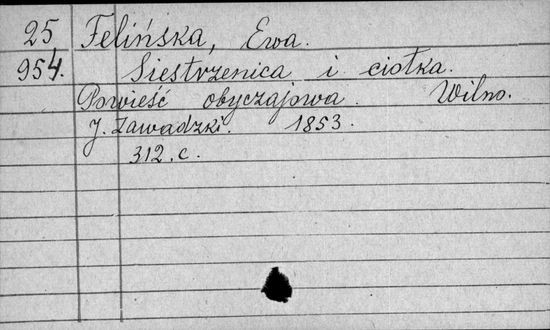 25 Felińska, Ewa.
954. Siestrzenica i ciotka.
Powieść obyczajowa. Wilno.
J. Zawadzki. 1853.
312. c.